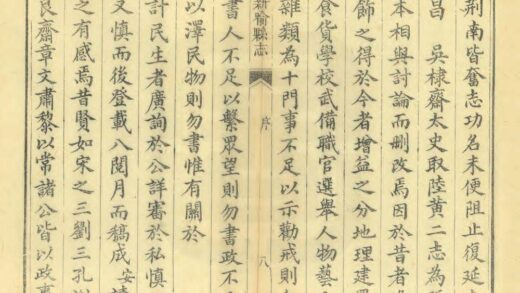 荆南皆奮志功名未便阻止復延
昌　吳棣齋太史取陸黃二志為
本相與討論而刪改焉因於昔者
飾之得於今者增益之分地理建
食貨學校武備職官選舉人物藝
雜類為十門事不足以示勸戒則
新喻縣志　序　八
書人不足以繫眾望則勿書政不
以澤民物則勿書惟有關於
計民生者廣詢於公詳審於私慎
又慎而後登載八閱月而稿成　安
之有感焉昔賢如宋之三劉三孔
艮齋章文肅黎以常諸公皆以政事